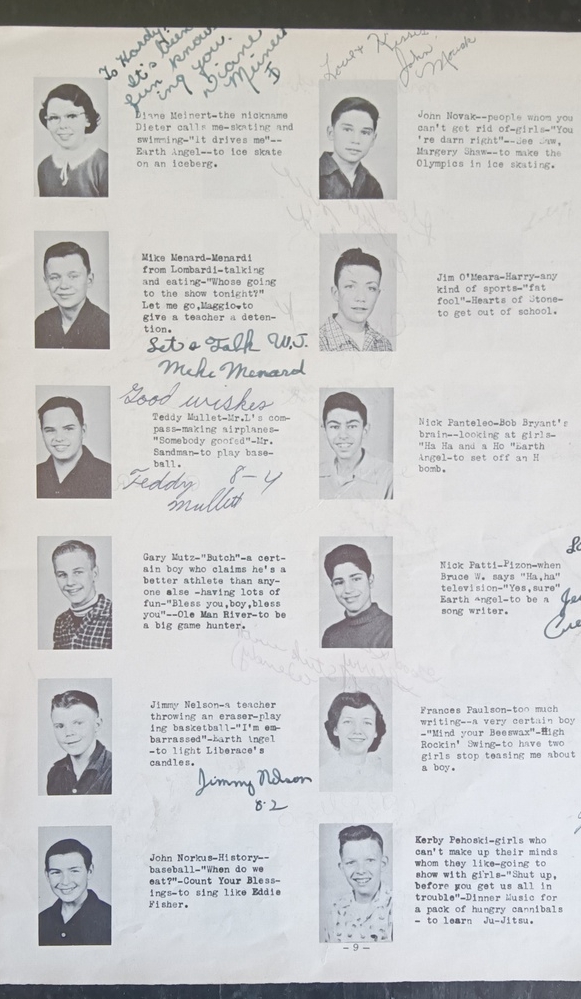 To Hardy,
It's been
fun know-
ing you.
Diane
Meinert
Diane Meinert-the nickname
Dieter calls me-skating and
swimming-"it drives me"--
Earth Angel--to ice skate
on an iceberg.
Mike Menard-Menardi
from Lombardi-talking
and eating-"Whose going
to the show tonight?"
Let me go,Maggio-to
give a teacher a deten-
tion.
Set a Talk W.J.
Mike Menard
Good wishes
Teddy Mullet-Mr.L's com-
pass-making airplanes-
"Somebody goofed"-Mr.
Sandman-to play base-
ball.
Teddy 8-4
Mullet
Gary Mutz-"Butch"-a cert-
ain boy who claims he's a
better athlete than any-
one else -having lots of
fun-"Bless you,boy,bless
you"--Ole Man River-to be
a big game hunter.
Jimmy Nelson-a teacher
throwing an eraser-play
ing basketball-"I'm em-
barrassed"-Earth Angel
-to light Liberace's
candles.
Jimmy Nelson
8-2
John Norkus-History--
baseball-"When do we
eat?"-Count Your Bless-
ings-to sing like Eddie
Fisher.
Love & Kisses
John
John Novak--people whom you
can't get rid of-girls-"You
're darn right"--See Saw,
Margery Shaw--to make the
Olympics in ice skating.
Jim O'Meara-Harry-any
kind of sports-"fat
fool"-Hearts of Stone-
to get out of school.
Nick Panteleo-Bob Bryant's
brain--looking at girls-
"Ha Ha and a Ho "Earth
Angel-to set off an H
bomb.
Nick Patti-Pizon-when
Bruce W. says "Ha,ha"
television-"Yes,sure"
Earth Angel-to be a
song writer.
Frances Paulson-too much
writing--a very certain boy
-"Mind your Beeswax"-High
Rockin' Swing-to have two
girls stop teasing me about
a boy.
Kerby Pehoski-girls who
can't make up their minds
whom they like-going to
show with girls-"Shut up,
before you get us all in
trouble"-Dinner Music for
a pack of hungry cannibals
- to learn Ju-Jitsu.
-9-